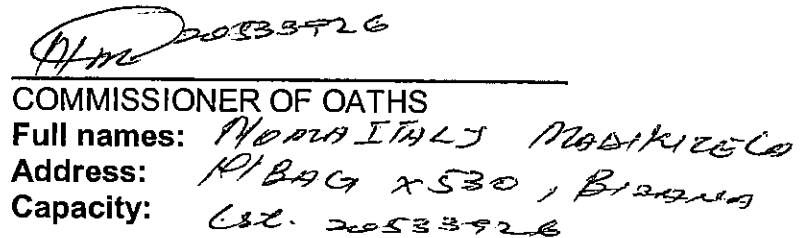 20533926
COMMISSIONER OF OATHS
Full names: NOMAITALY MADIKIZELA
Address: P/BAG X530, BIZANA
Capacity: Cst. 20533926